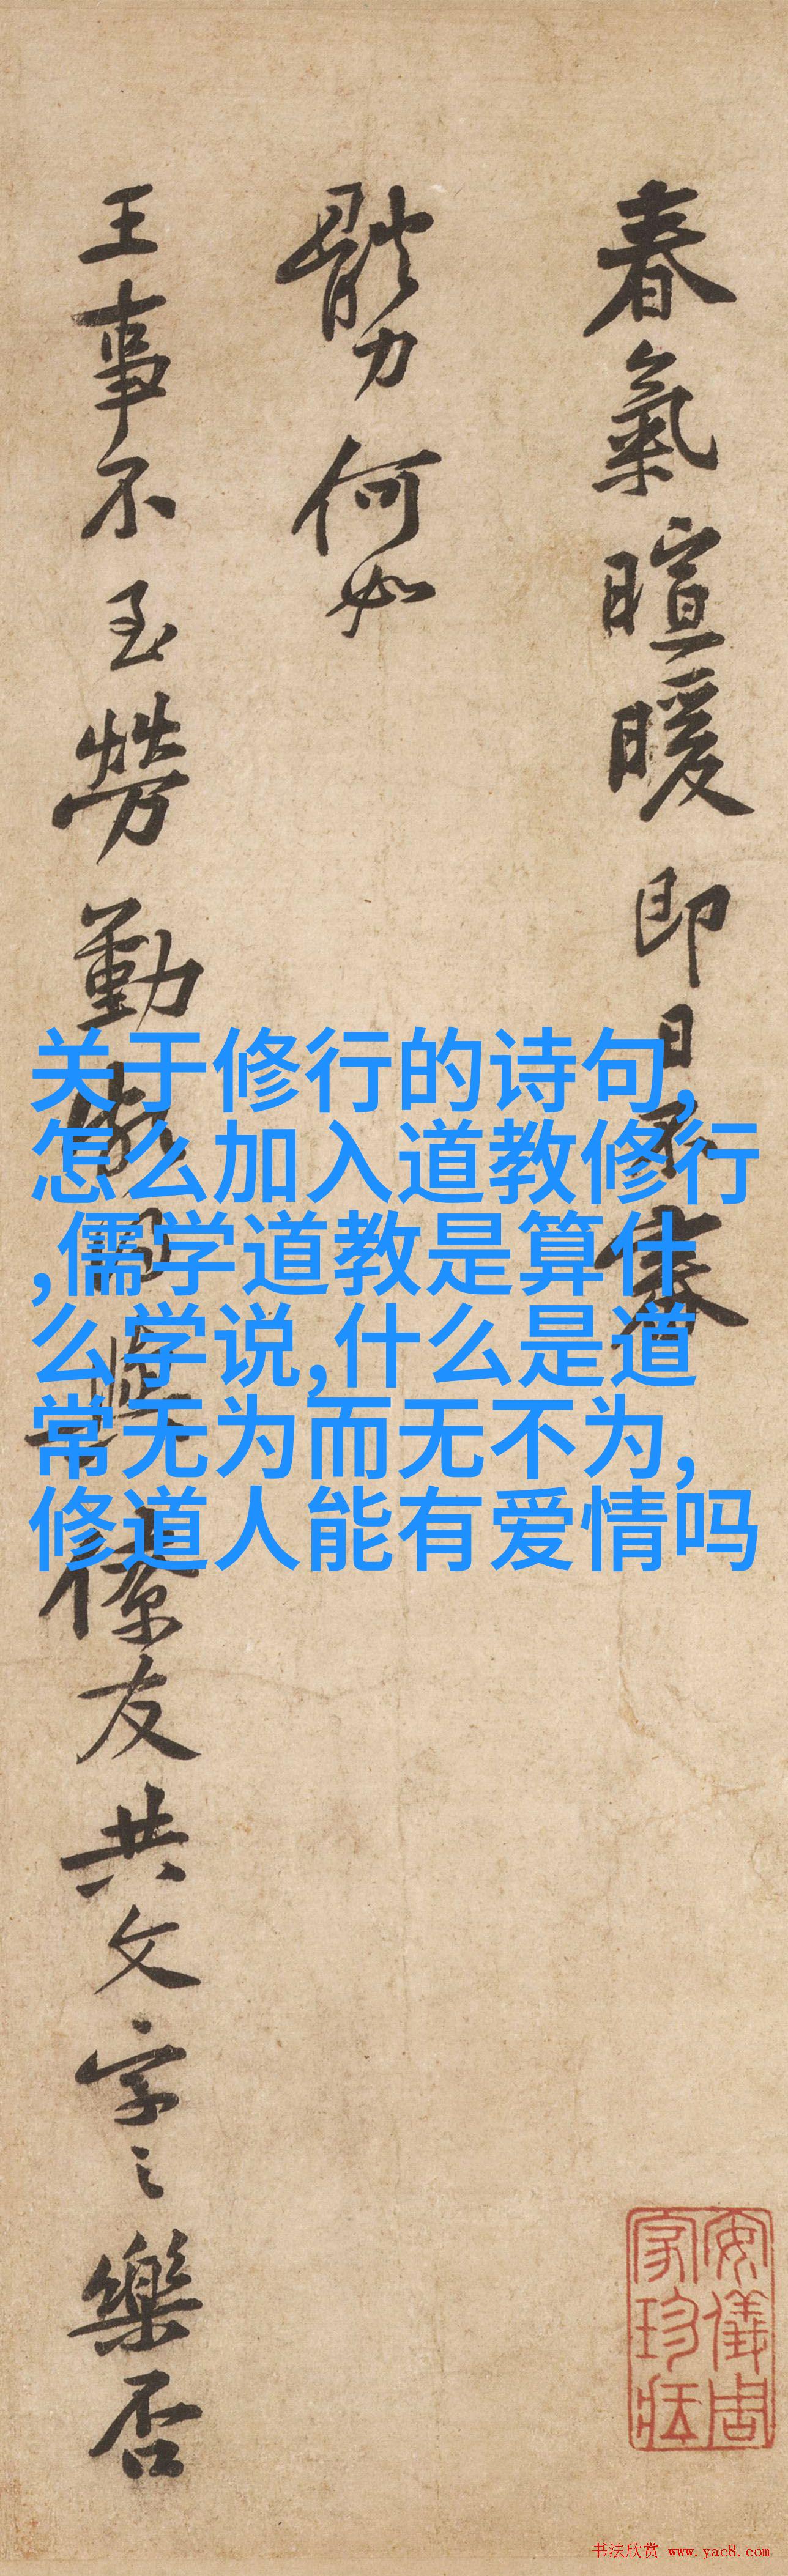 春氣暄暖即日不審
體力何如
王事不至勞勤
僚友共文字之樂否
关于修行的诗句,
怎么加入道教修行
,儒学道教是算什
么学说,什么是道
常无为而无不为,
修道人能有爱情吗
安儀周
家珍藏
书法欣赏 www.yac8.com